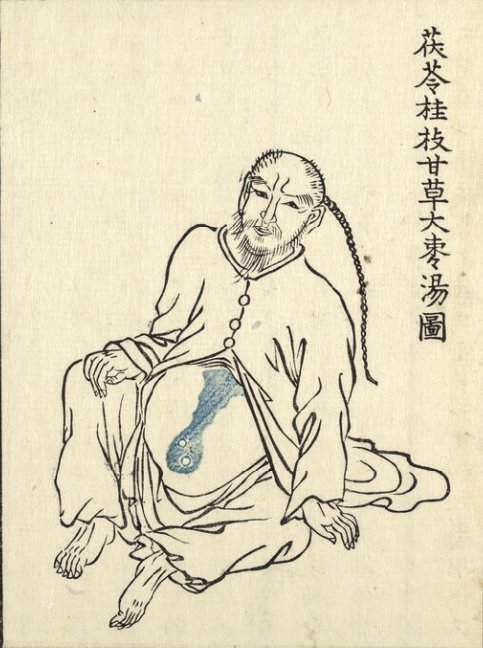 茯苓桂枝甘草大枣湯圖